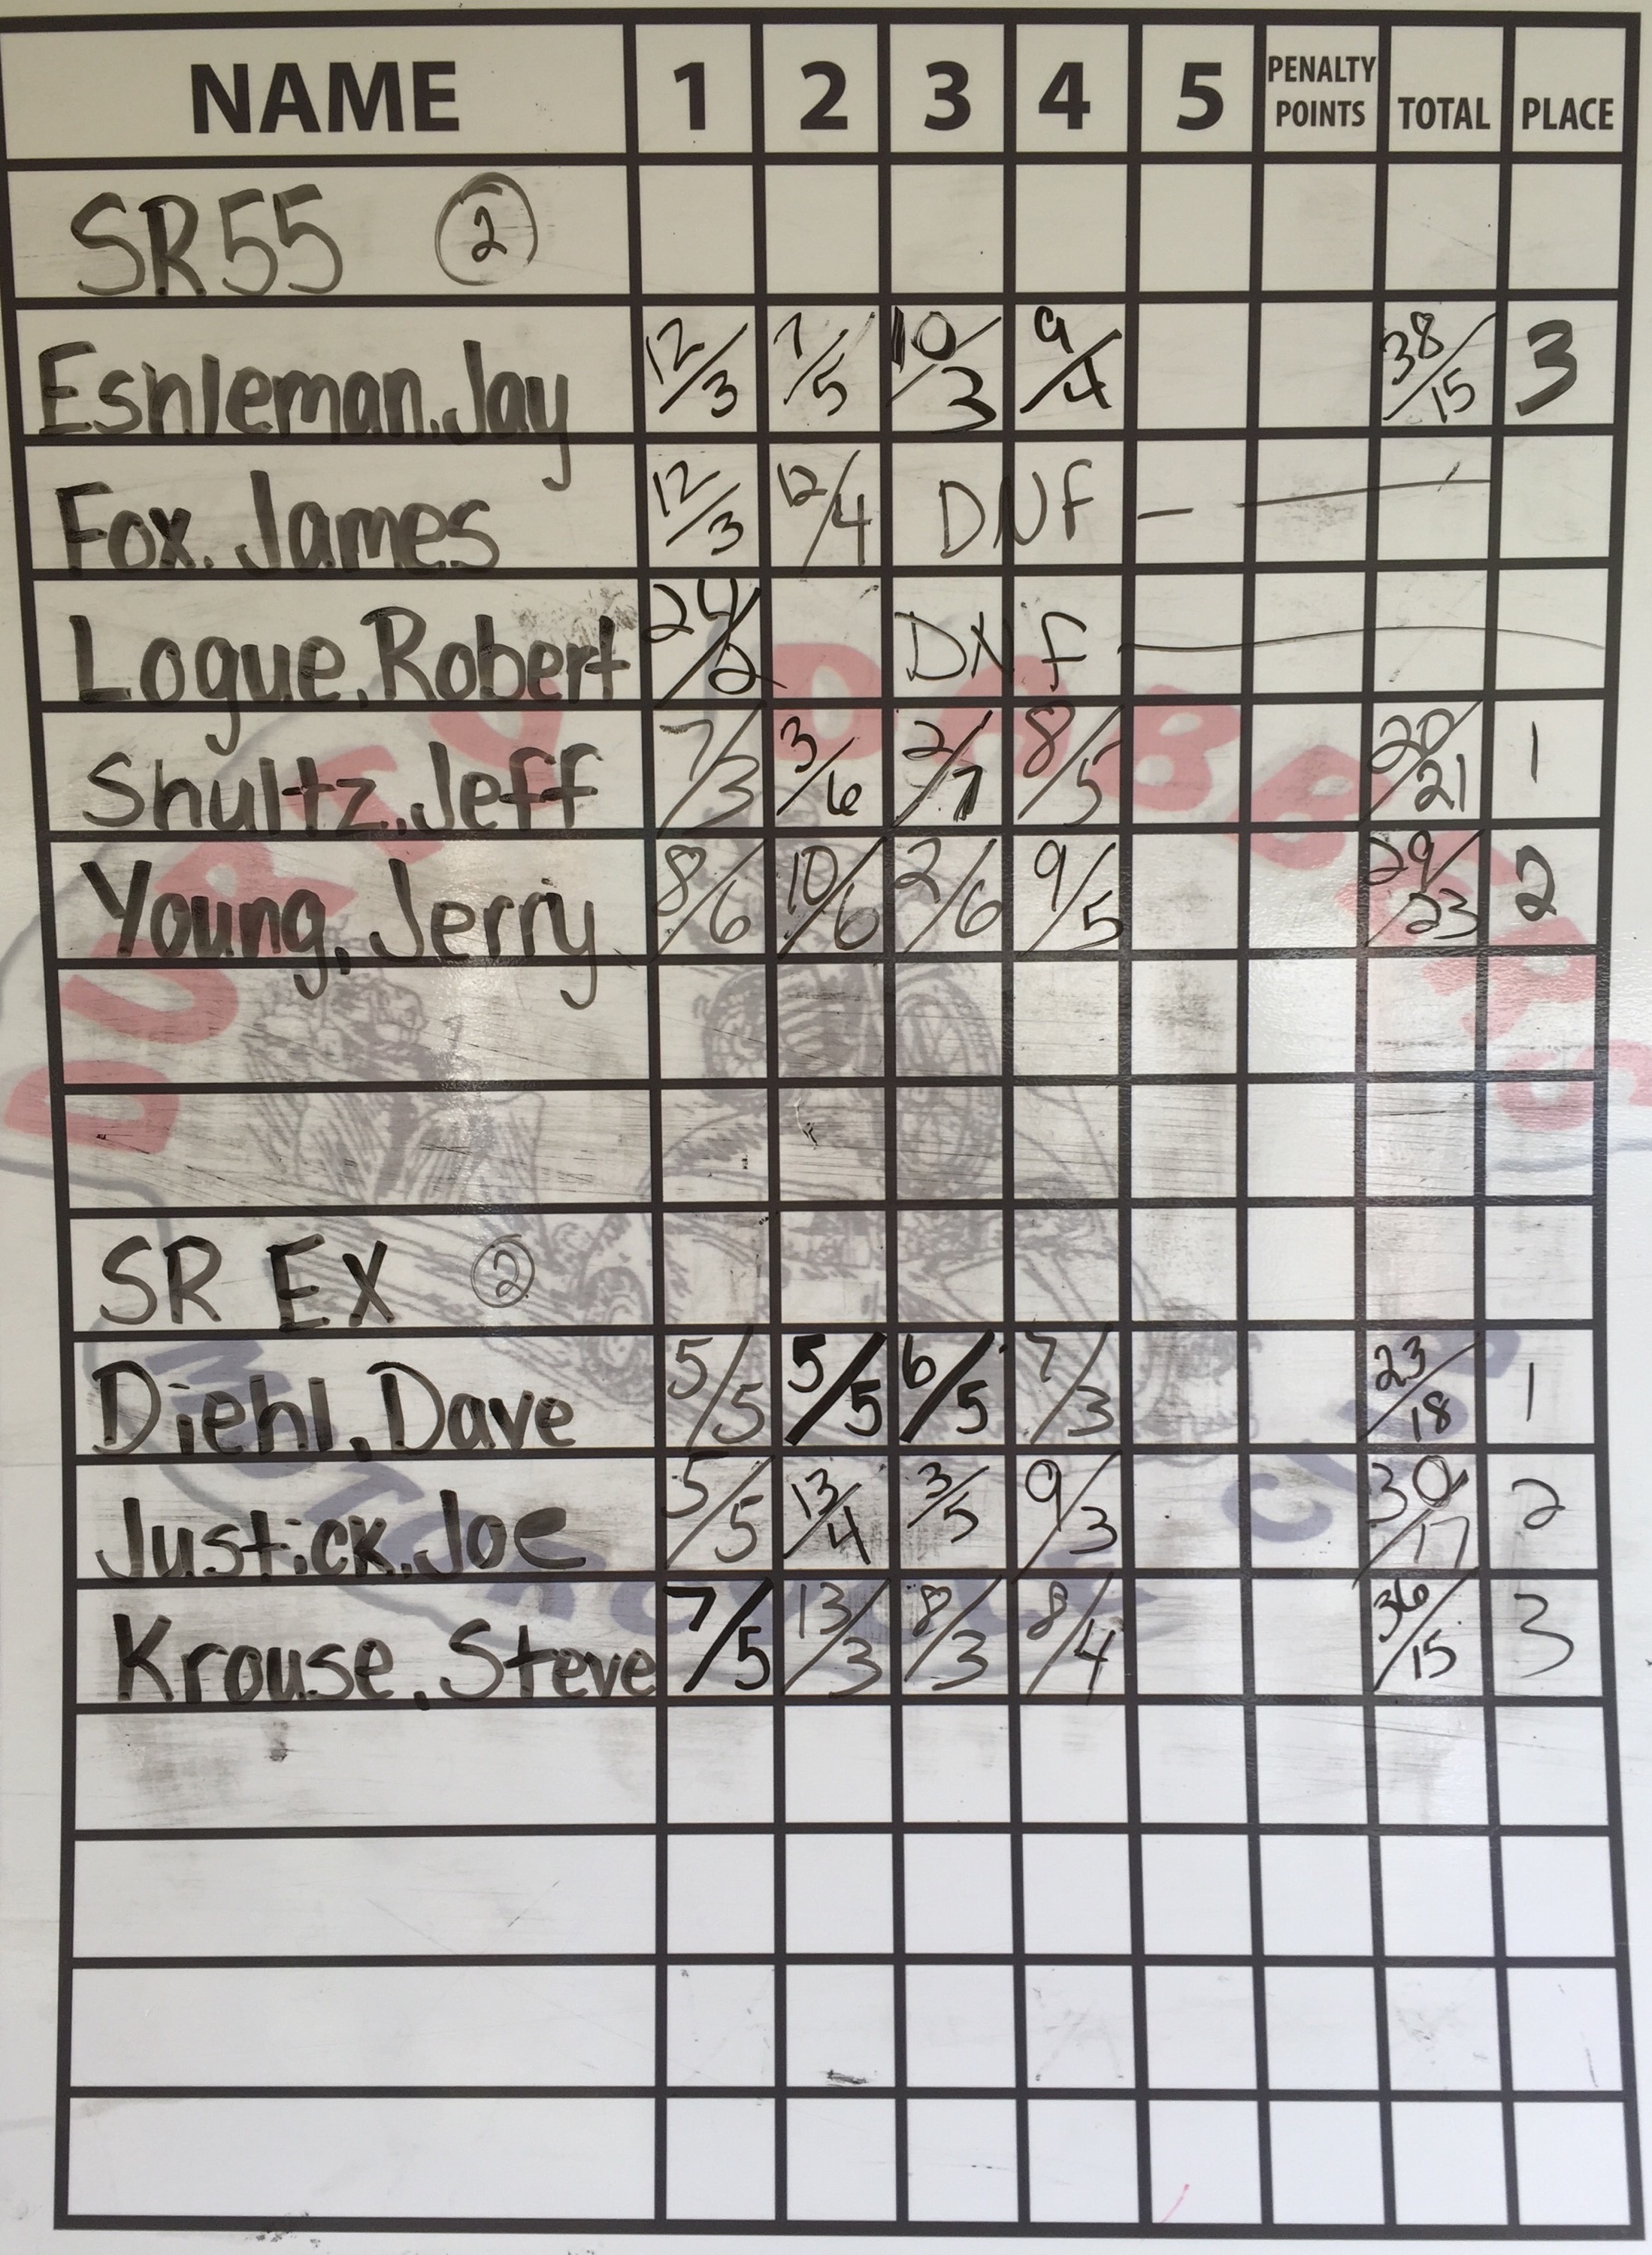 NAME 1 2 3 4 5 PENALTY POINTS TOTAL PLACE
SR55 2
Eshleman, Jay 12/3 7/5 10/3 9/4 38/15 3
Fox, James 12/3 12/4 DNF
Logue, Robert 24/2 DNF
Shultz, Jeff 7/3 3/6 2/7 8/5 20/21 1
Young, Jerry 8/6 10/6 2/6 9/5 29/23 2
SR EX 2
Diehl, Dave 5/5 5/5 6/5 7/3 23/18 1
Justick, Joe 5/5 13/4 3/5 9/3 30/17 2
Krouse, Steve 7/5 13/3 8/3 8/4 36/15 3
DURTY DABBERS
MOTORCYCLE CLUB